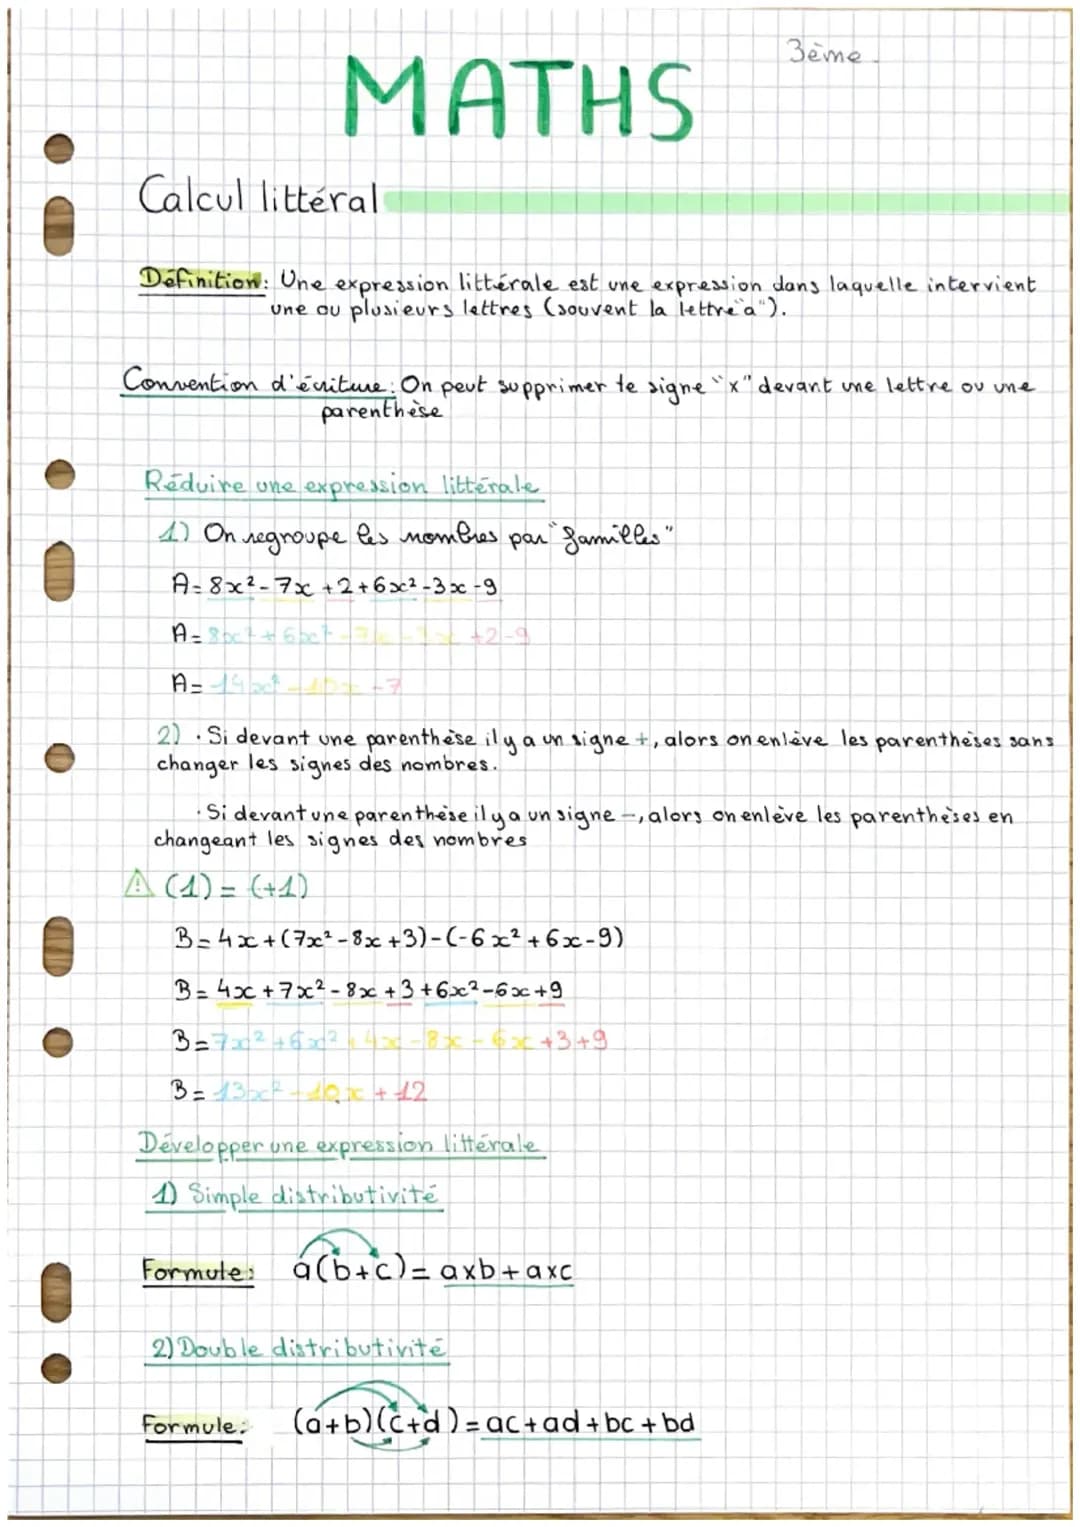 3ème
MATHS
Calcul littéral
Définition: Une expression littérale est une expression dans laquelle intervient
une ou plusieurs lettres (souvent la lettre "a").
Convention d'écriture: On peut supprimer le signe "x" devant une lettre ou une
parenthèse
Réduire une expression littérale
1) On regroupe les nombres par "familles"
A = 8x² - 7x + 2 + 6x² - 3x - 9
A = 8x² + 6x² - 7x - 3x + 2 - 9
A = 14x² - 10x - 7
2) · Si devant une parenthèse il y a un signe +, alors on enlève les parenthèses sans
changer les signes des nombres.
· Si devant une parenthèse il y a un signe -, alors on enlève les parenthèses en
changeant les signes des nombres
⚠ (1) = (+1)
B = 4x + (7x² - 8x + 3) - (-6x² + 6x - 9)
B = 4x + 7x² - 8x + 3 + 6x² - 6x + 9
B = 7x² + 6x² + 4x - 8x - 6x + 3 + 9
B = 13x² - 10x + 12
Développer une expression littérale
1) Simple distributivité
Formule: a(b+c) = axb + axc
2) Double distributivité
Formule: (a+b)(c+d) = ac + ad + bc + bd